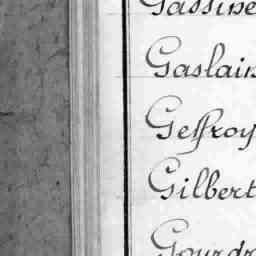 Gassine
Gaslain
Geffroy
Gilbert
Gourdr